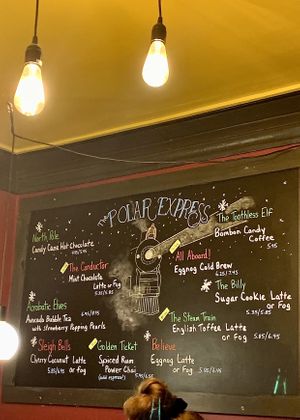 THE POLAR EXPRESS
North Pole
Candy Cane Hot Chocolate
The Conductor
Mint Chocolate
Latte or Fog
5.35/5.85
Acrobatic Elves
Avocado Bubble Tea
with strawberry Popping Pearls
Sleigh Bells
Cherry Coconut Latte
or Fog
Golden Ticket
Spiced Rum
Power Chai
All Aboard!
Eggnog Cold Brew
The Toothless Elf
Bonbon Candy
Coffee
The Billy
Sugar Cookie Latte
or Fog
The Steam Train
English Toffee Latte
or Fog
5.85/6.45
Believe
Eggnog Latte
or Fog
5.85/6.45